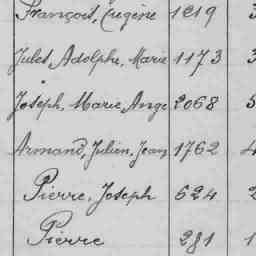 François, Eugène 1219 3
Jules, Adolphe, Marie 1173 3
Joseph, Marie, Ange 2068 5
Armand, Julien, Jean 1762 4
Pierre, Joseph 624 2
Pierre 281 1